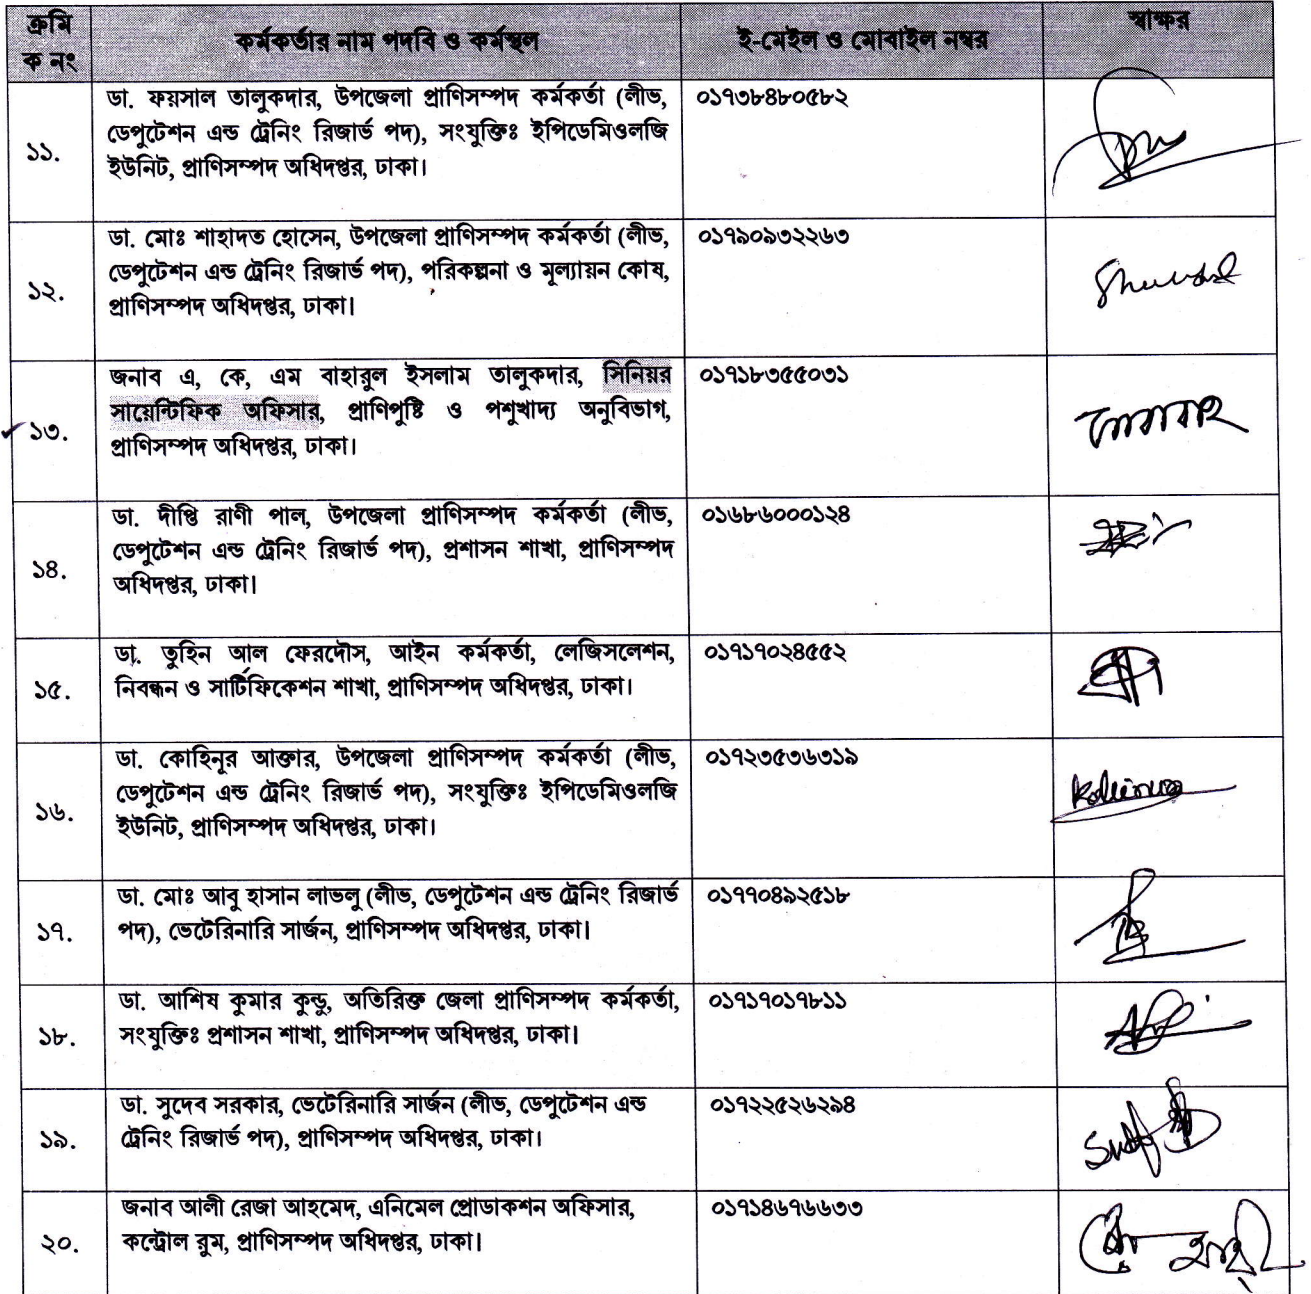 ক্রমি
ক নং
কর্মকর্তার নাম পদবি ও কর্মস্থল
ই-মেইল ও মোবাইল নম্বর
স্বাক্ষর
১১.
ডা. ফয়সাল তালুকদার, উপজেলা প্রাণিসম্পদ কর্মকর্তা (লীভ,
ডেপুটেশন এন্ড ট্রেনিং রিজার্ভ পদ), সংযুক্তিঃ ইপিডেমিওলজি
ইউনিট, প্রাণিসম্পদ অধিদপ্তর, ঢাকা।
০১৭৩৮৪৮০৫৮২
১২.
ডা. মোঃ শাহাদত হোসেন, উপজেলা প্রাণিসম্পদ কর্মকর্তা (লীভ,
ডেপুটেশন এন্ড ট্রেনিং রিজার্ভ পদ), পরিকল্পনা ও মূল্যায়ন কোষ,
প্রাণিসম্পদ অধিদপ্তর, ঢাকা।
০১৭৯০৯৩২২৬৩
১৩.
জনাব এ, কে, এম বাহারুল ইসলাম তালুকদার, সিনিয়র
সায়েন্টিফিক অফিসার, প্রাণিপুষ্টি ও পশুখাদ্য অনুবিভাগ,
প্রাণিসম্পদ অধিদপ্তর, ঢাকা।
০১৭১৮৩৫৫০৩১
১৪.
ডা. দীপ্তি রাণী পাল, উপজেলা প্রাণিসম্পদ কর্মকর্তা (লীভ,
ডেপুটেশন এন্ড ট্রেনিং রিজার্ভ পদ), প্রশাসন শাখা, প্রাণিসম্পদ
অধিদপ্তর, ঢাকা।
০১৬৮৬০০০১২৪
১৫.
ডা. তুহিন আল ফেরদৌস, আইন কর্মকর্তা, লেজিসলেশন,
নিবন্ধন ও সার্টিফিকেশন শাখা, প্রাণিসম্পদ অধিদপ্তর, ঢাকা।
০১৭১৭০২৪৫৫২
১৬.
ডা. কোহিনূর আক্তার, উপজেলা প্রাণিসম্পদ কর্মকর্তা (লীভ,
ডেপুটেশন এন্ড ট্রেনিং রিজার্ভ পদ), সংযুক্তিঃ ইপিডেমিওলজি
ইউনিট, প্রাণিসম্পদ অধিদপ্তর, ঢাকা।
০১৭২৩৫৩৬৩১৯
১৭.
ডা. মোঃ আবু হাসান লাভলু (লীভ, ডেপুটেশন এন্ড ট্রেনিং রিজার্ভ
পদ), ভেটেরিনারি সার্জন, প্রাণিসম্পদ অধিদপ্তর, ঢাকা।
০১৭৭০৪৯২৫১৮
১৮.
ডা. আশিষ কুমার কুন্ডু, অতিরিক্ত জেলা প্রাণিসম্পদ কর্মকর্তা,
সংযুক্তিঃ প্রশাসন শাখা, প্রাণিসম্পদ অধিদপ্তর, ঢাকা।
০১৭১৭০১৭৮১১
১৯.
ডা. সুদেব সরকার, ভেটেরিনারি সার্জন (লীভ, ডেপুটেশন এন্ড
ট্রেনিং রিজার্ভ পদ), প্রাণিসম্পদ অধিদপ্তর, ঢাকা।
০১৭২২৫২৬২৯৪
২০.
জনাব আলী রেজা আহমেদ, এনিমেল প্রোডাকশন অফিসার,
কন্ট্রোল রুম, প্রাণিসম্পদ অধিদপ্তর, ঢাকা।
০১৭১৪৬৭৬৬৩৩